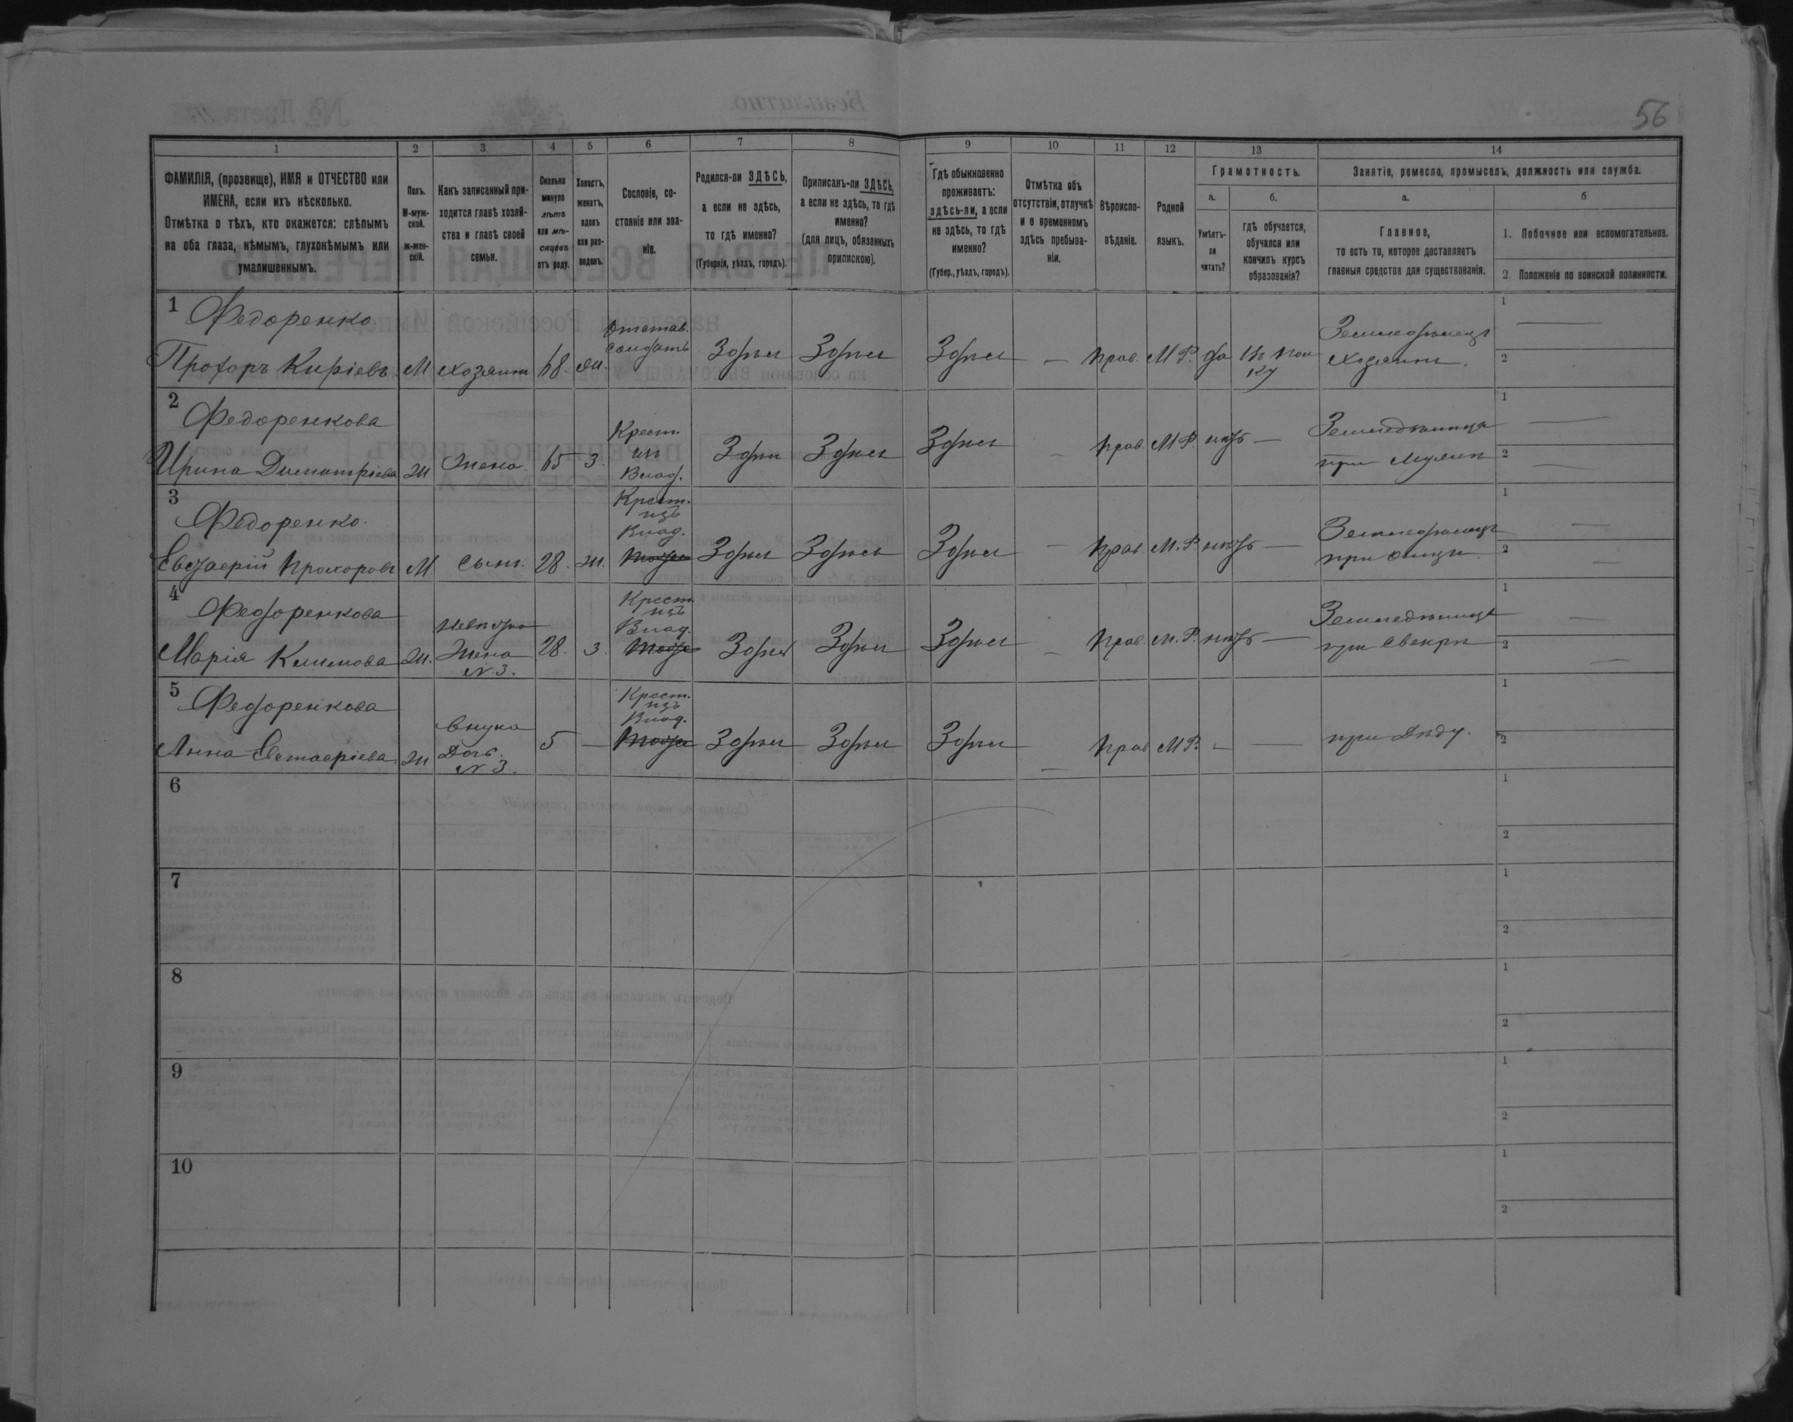 56
1 2 3 4 5 6 7 8 9 10 11 12 13 14
ФАМИЛІЯ, (прозвище), ИМЯ и ОТЧЕСТВО или
ИМЕНА, если ихъ нѣсколько.
Отмѣтка о тѣхъ, кто окажется: слѣпымъ
на оба глаза, нѣмымъ, глухонѣмымъ или
умалишеннымъ.
Полъ.
М-муж-
ской.
ж-жен-
скій.
Какъ записанный при-
ходится главѣ хозяй-
ства и главѣ своей
семьи.
Сколько
минуло
лѣтъ
или мѣ-
сяцевъ
отъ роду.
Холостъ,
женатъ,
вдовъ
или раз-
веденъ.
Сословіе, со-
стояніе или зва-
ніе.
Родился-ли ЗДѢСЬ,
а если не здѣсь,
то гдѣ именно?
(Губернія, уѣздъ, городъ).
Приписанъ-ли ЗДѢСЬ,
а если не здѣсь, то гдѣ
именно?
(для лицъ, обязанныхъ
припискою).
Гдѣ обыкновенно
проживаетъ:
здѣсь-ли, а если
не здѣсь, то гдѣ
именно?
(Губер., уѣздъ, городъ).
Отмѣтка объ
отсутствіи, отлучкѣ
и о временномъ
здѣсь пребыва-
ніи.
Вѣроиспо-
вѣданіе.
Родной
языкъ.
Грамотность.
а.
Умѣетъ-
ли
читать?
б.
гдѣ обучается,
обучался или
кончилъ курсъ
образованія?
Занятіе, ремесло, промыселъ, должность или служба.
а.
Главное,
то есть то, которое доставляетъ
главныя средства для существованія.
б
1. Побочное или вспомогательное.
2. Положеніе по воинской повинности.
1 Федоренко
Прохоръ Киріевъ М хозяинъ 68. жн. Отстав. солдатъ Здѣсь Здѣсь Здѣсь — прав. М.Р. да Въ пол ку Земледѣлецъ хозяинъ. 1 — 2
2 Федоренкова
Ирина Димитріева ж Жена. 65 з. Крест. из Влад. Здѣсь Здѣсь Здѣсь прав. М.Р. нѣтъ — Земледѣлица при мужѣ 1 — 2 —
3 Федоренко.
Евстаерій Прохоровъ М. сынъ. 28. ж. Крест. изъ Влад. Здѣсь Здѣсь Здѣсь — прав. М.Р. нѣтъ — Земледѣлецъ при отцѣ. 1 — 2 —
4 Федоренкова
Марія Климова ж. невѣстка Жена №3. 28. з. Крест. изъ Влад. Здѣсь Здѣсь Здѣсь — прав. М.Р. нѣтъ — Земледѣлица при свекрѣ 1 — 2 —
5 Федоренкова
Анна Евстаеріева. ж внука Дочь. №3. 5 — Крест. изъ Влад. Здѣсь Здѣсь Здѣсь — прав М.Р. — — при Дѣду. 1 2
6 1 2
7 1 2
8 1 2
9 1 2
10 1 2